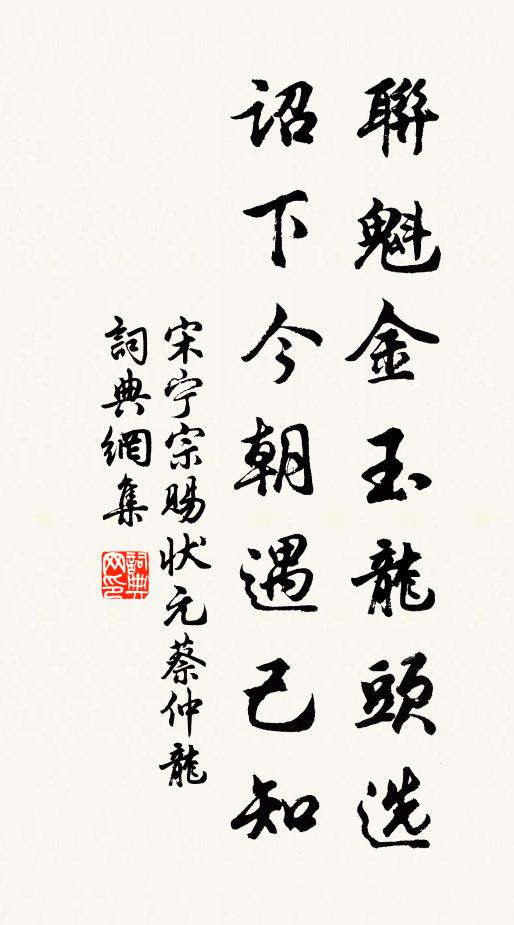 聯魁金玉龍頭选
詔下今朝遇己知
宋宁宗賜状元蔡仲龍
詞典網集
詞典
网印